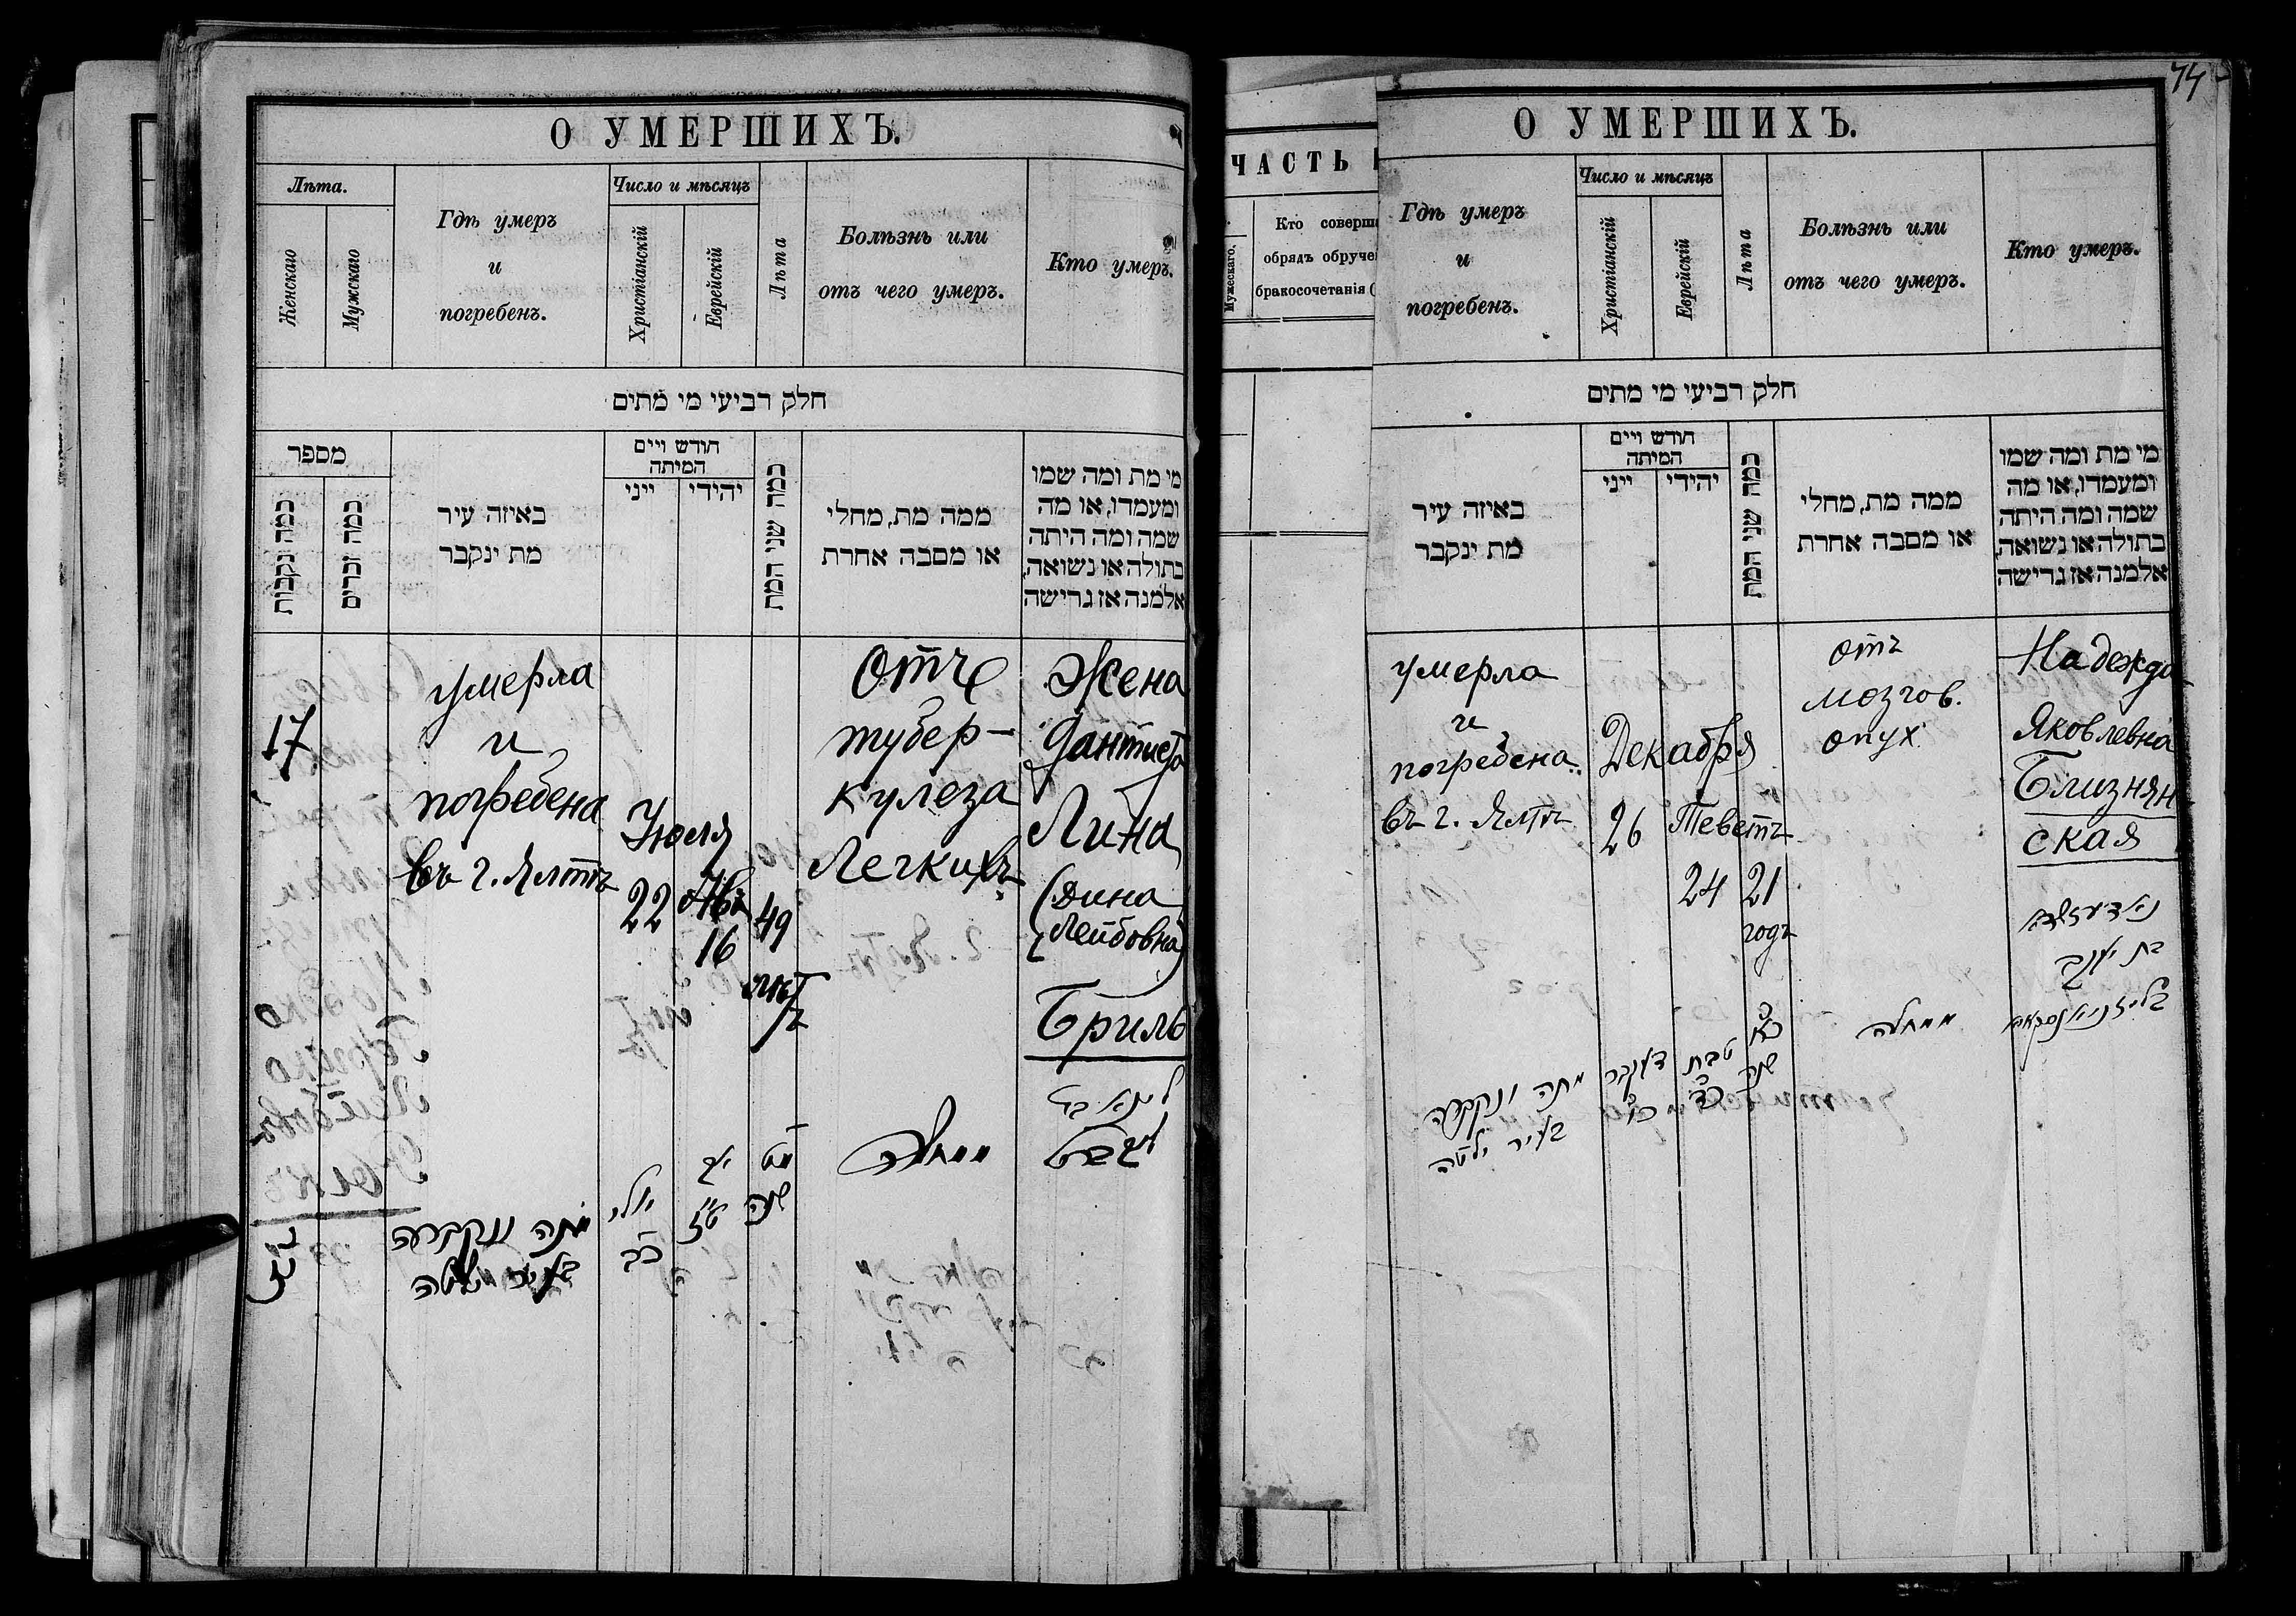 О УМЕРШИХЪ.
Лѣта.
Женскаго
Мужскаго
Гдѣ умеръ
и
погребенъ.
Число и мѣсяцъ
Христіанскій
Еврейскій
Лѣта
Болѣзнь или
отъ чего умеръ.
Кто умеръ.
חלק רביעי מי מתים
מספר
כמה נקבות
כמה זכרים
באיזה עיר
מת ינקבר
חודש ויים
המיתה
ייני
יהידי
כמה שני המת
ממה מת, מחלי
או מסבה אחרת
מי מת ומה שמו
ומעמדו, או מה
שמה ומה היתה
בתולה או נשואה,
אלמנה אז גרישה
17
умерла
и
погребена
въ г. Ялтѣ
Іюля
22
Ава
16
49
лѣтъ
Отъ
тубер-
кулеза
Легкихъ
Жена
Дантиста
Лина
(Дина
Лейбовна)
Бриль
מתה ונקברה
בעיר ילטה
יולי
כב
אב
ט״ז
מט
שנה
ממחלה
לינא
74
ЧАСТЬ
Мужескаго.
Кто соверш
обрядъ обруче
бракосочетанія (
О УМЕРШИХЪ.
Гдѣ умеръ
и
погребенъ.
Число и мѣсяцъ
Христіанскій
Еврейскій
Лѣта
Болѣзнь или
отъ чего умеръ.
Кто умеръ.
חלק רביעי מי מתים
באיזה עיר
מת ינקבר
חודש ויים
המיתה
ייני
יהידי
כמה שני המת
ממה מת, מחלי
או מסבה אחרת
מי מת ומה שמו
ומעמדו, או מה
שמה ומה היתה
בתולה או נשואה,
אלמנה אז גרישה
умерла
и
погребена
въ г. Ялтѣ
Декабря
26
Теветъ
24
21
годъ
отъ
мозгов.
опух.
Надежда
Яковлевна
Близнян
ская
מתה ונקברה
בעיר ילטה
דעקבר
כו
טבת
כד
כא
שנה
ממחלה
נאדעזדא
בת יעקב
בליזניאנסקאיא